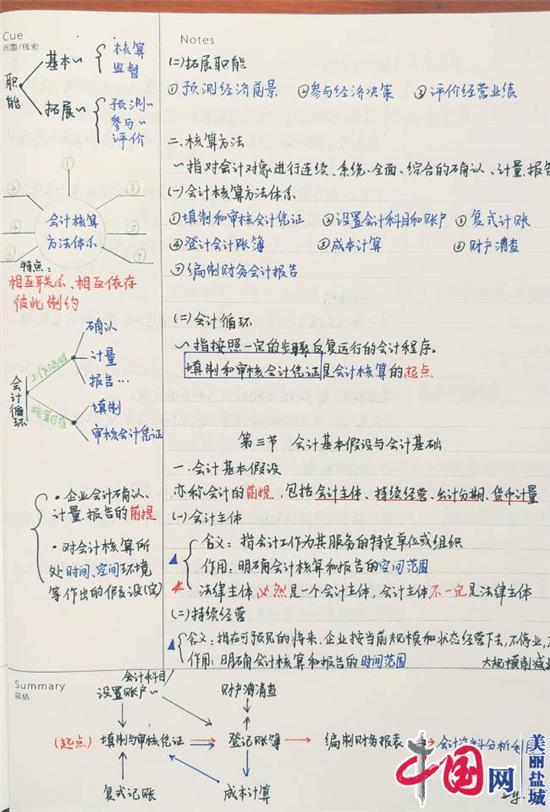 Cue
问题/线索
职能
基本~
核算
监督
拓展~
预测~
参与~
评价
①
②
③
④
⑤
⑥
⑦
会计核算
方法体系
特点:
相互联系、相互依存
彼此制约
会计循环
确认
计量
报告…
填制
审核会计凭证
·企业会计确认、
计量、报告的前提
·对会计核算所
处时间、空间环境
等作出的假设(定)
Notes
(二)拓展职能
①预测经济前景 ②参与经济决策 ③评价经营业绩
二.核算方法
~指对会计对象进行连续、系统、全面、综合的确认、计量、报告
(一)会计核算方法体系
①填制和审核会计凭证 ②设置会计科目和账户 ③复式记账
④登记会计账簿 ⑤成本计算 ⑥财产清查
⑦编制财务会计报告
(二)会计循环
~指按照一定的步骤反复运行的会计程序。
填制和审核会计凭证是会计核算的起点
第三节 会计基本假设与会计基础
一.会计基本假设
亦称会计的前提,包括会计主体、持续经营、会计分期、货币计量
(一)会计主体
含义:指会计工作为其服务的特定单位或组织
作用:明确会计核算和报告的空间范围
法律主体必然是一个会计主体,会计主体不一定是法律主体
(二)持续经营
含义:指在可预见的将来,企业按当前规模和状态经营下去,不停业,
大规模削减业
作用:明确会计核算和报告的时间范围
Summary
总结
会计科目/
设置账户~
财产清查
(起点)
填制与审核凭证
登记账簿
编制财务报表
会计资料分析利用
复式记账
成本计算
中国网
美丽盐城